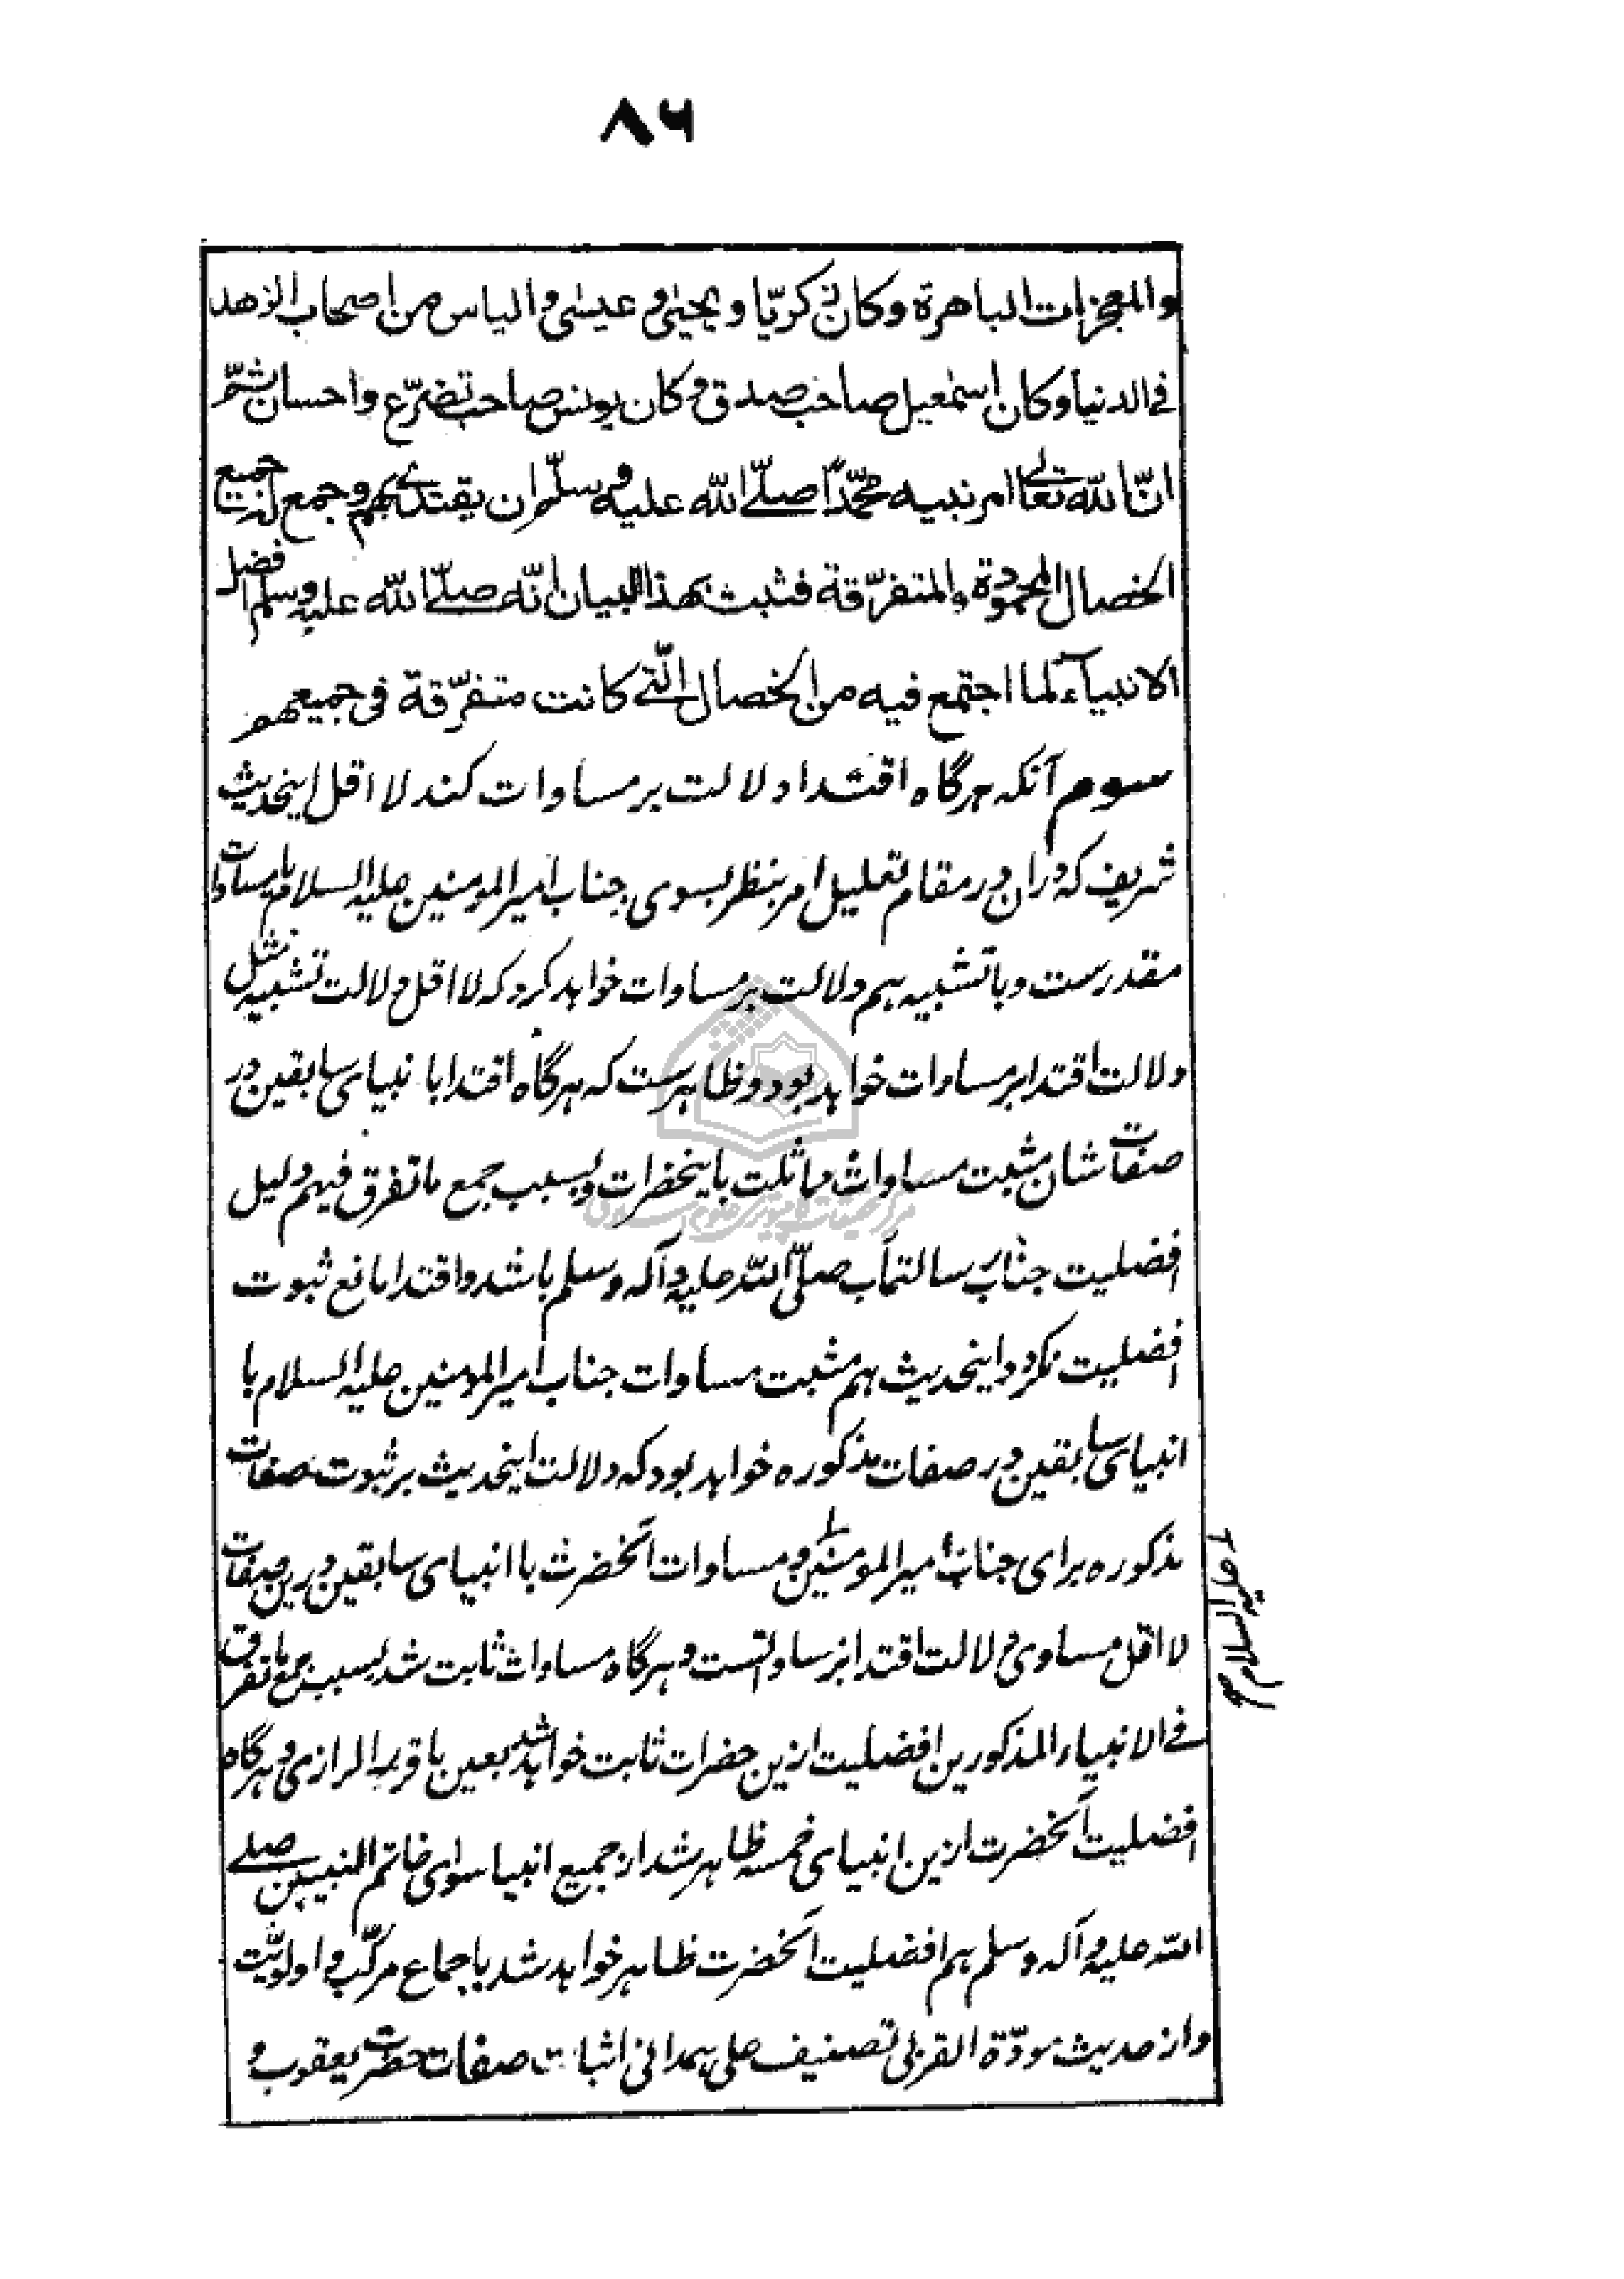 ۸۶
والمعجزات الباهرة وكان زكريّا و يحيى و عيسى و الياس من اصحاب الزهد
فى الدنيا و كان اسمعيل صاحب صدق و كان يونس صاحب تضرّع و احسان ثمّ
انّ الله تعالى امر نبيه محمّدًا صلّى الله عليه و سلّم ان يقتدى بهم و جمع له جميع
الخصال المحمودة المتفرّقة فثبت بهذا البيان انّه صلّى الله عليه وسلم افضل
الانبياء لما اجتمع فيه من الخصال الّتى كانت متفرّقة فى جميعهم
سوم آنکه هرگاه اقتدا دلالت بر مساوات کند لا اقل اینحدیث
شریف که دران در مقام تعلیل امر بنظر بسوی جناب امیرالمومنین علیه السلام یا مساوات
مقدرست و یا تشبیه هم دلالت بر مساوات خواهد کرد که لا اقل دلالت تشبیه مثل
دلالت اقتدا بر مساوات خواهد بود و ظاهرست که هرگاه اقتدا بانبیای سابقین در
صفات شان مثبت مساوات و مماثلت باینحضرات و بسبب جمع ما تفرق فیهم دلیل
افضلیت جناب رسالتمآب صلّی الله علیه و آله و سلم باشد و اقتدا مانع ثبوت
افضلیت نگردد اینحدیث هم مثبت مساوات جناب امیرالمومنین علیه السلام با
انبیای سابقین در صفات مذکوره خواهد بود که دلالت اینحدیث بر ثبوت صفات
مذکوره برای جناب امیرالمومنینؑ و مساوات آنحضرت با انبیای سابقین درین صفات
لا اقل مساوی دلالت اقتدا بر مساواتست و هرگاه مساوات ثابت شد بسبب جمع ما تفرق
فى الانبياء المذكورین افضلیت ازین حضرات ثابت خواهد شد بعین ما قرره الرازی و هرگاه
افضلیت آنحضرت ازین انبیای خمسه ظاهر شد از جمیع انبیا سوای خاتم النبیین صلی
الله علیه و آله و سلم هم افضلیت آنحضرت ظاهر خواهد شد باجماع مرکّب و اولویّت
و از حدیث مودّة القربی تصنیف علی همدانی اثبات صفات حضرت یعقوب و